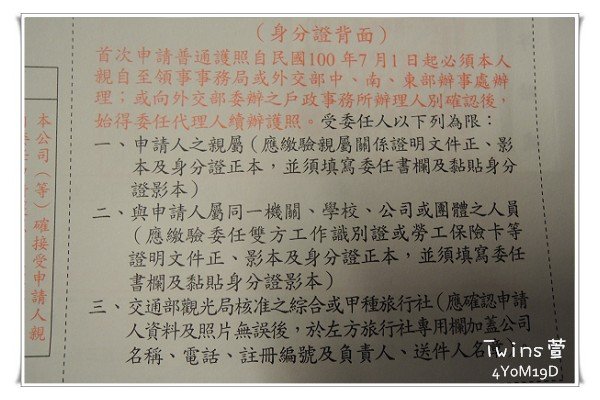 （身分證背面）
首次申請普通護照自民國100年7月1日起必須本人
親自至領事事務局或外交部中、南、東部辦事處辦
理；或向外交部委辦之戶政事務所辦理人別確認後，
始得委任代理人續辦護照。受委任人以下列為限：
一、申請人之親屬（應繳驗親屬關係證明文件正、影
本及身分證正本，並須填寫委任書欄及黏貼身分
證影本）
二、與申請人屬同一機關、學校、公司或團體之人員
（應繳驗委任雙方工作識別證或勞工保險卡等
證明文件正、影本及身分證正本，並須填寫委任
書欄及黏貼身分證影本）
三、交通部觀光局核准之綜合或甲種旅行社（應確認申請
人資料及照片無誤後，於左方旅行社專用欄加蓋公司
名稱、電話、註冊編號及負責人、送件人名
本公司（等）確接受申請人親
Twins萱
4Y0M19D